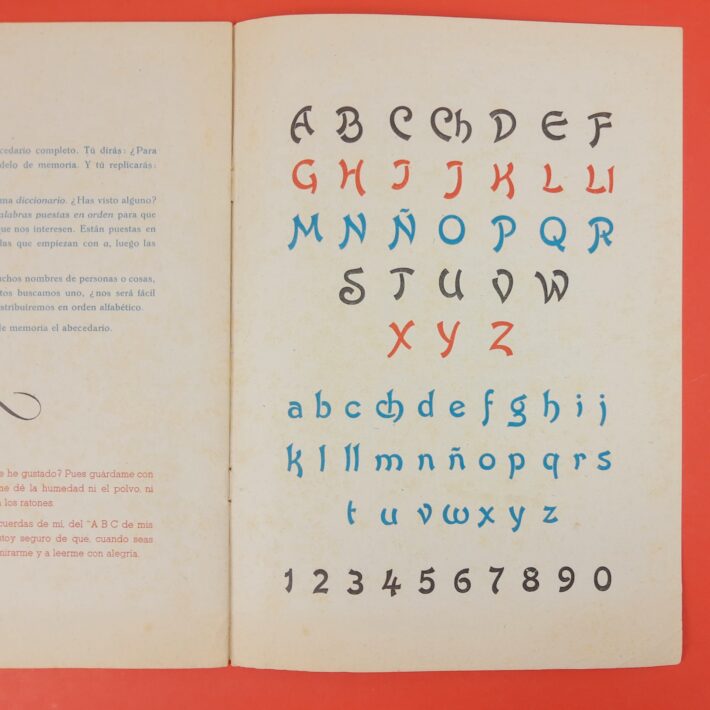 cedario completo. Tú dirás: ¿Para
delo de memoria. Y tú replicarás:
ma diccionario. ¿Has visto alguno?
alabras puestas en orden para que
que nos interesen. Están puestas en
las que empiezan con a, luego las
uchos nombres de personas o cosas,
tos buscamos uno, ¿nos será fácil
stribuiremos en orden alfabético.
de memoria el abecedario.
e he gustado? Pues guárdame con
me dé la humedad ni el polvo, ni
los ratones
cuerdas de mí, del "A B C de mis
stoy seguro de que, cuando seas
mirarme y a leerme con alegría.
A B C Ch D E F
G H I J K L Ll
M N Ñ O P Q R
S T U V W
X Y Z
a b c ch d e f g h i j
k l ll m n ñ o p q r s
t u v w x y z
1 2 3 4 5 6 7 8 9 0